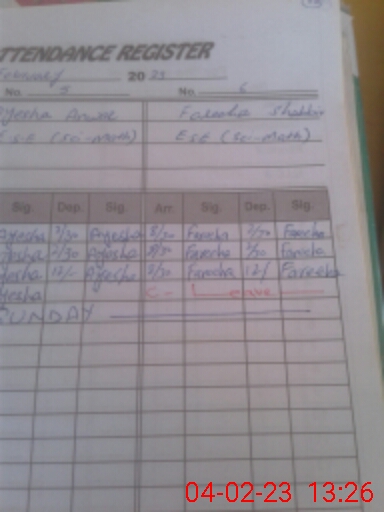 ATTENDANCE REGISTER
February 2023
No. 5 No. 6
Ayesha Anwar Fareeha Shabbir
E.S.E (Sci-Math) E.S.E (Sci-Math)
Sig. Dep. Sig. Arr. Sig. Dep. Sig.
Ayesha Ayesha 8/30 Fareeha Fareeha
Ayesha Ayesha 8/30 Fareeha Fareeha
Ayesha 12/- Ayesha Fareeha 12/ Fareeha
Ayesha C- Leave
SUNDAY
04-02-23 13:26